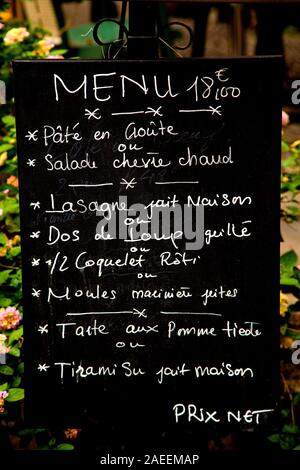 MENU 18,00€
* Pâté en Croûte
ou
* Salade chèvre chaud
* Lasagne fait Maison
ou
* Dos de Loup grillé
ou
* 1/2 Coquelet Rôti
ou
* Moules marinière frites
* Tarte aux Pomme tiède
ou
* Tirami Su fait maison
PRIX NET
alamy
Image ID: 2AEEMAP
www.alamy.com